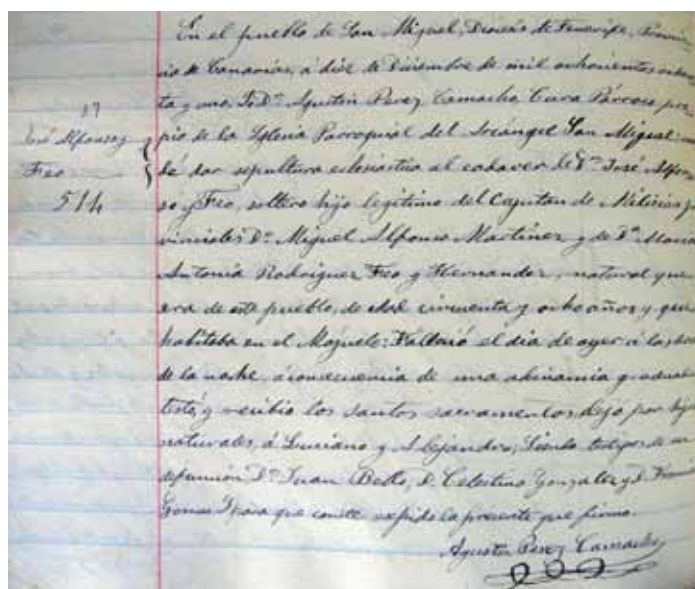 En el pueblo de San Miguel, Diocesis de Tenerife, Provin
cia de Canarias, á diez de Diciembre de mil ochocientos ochen
ta y uno. Yo Dn. Agustin Perez Camacho, Cura Párroco pro
pio de la Iglesia Parroquial del Arcángel San Miguel:
dé dar sepultura eclesiastica al cadaver de Dn. José Alfon
so y Feo, soltero hijo legitimo del Capitan de Milicias pro
vinciales Dn. Miguel Alfonso Martinez y de Da. Maria
Antonia Rodriguez Feo y Hernandez, natural que
era de este pueblo, de edad cincuenta y ocho años y que
habitaba en el Mojuelo: Falleció el dia de ayer á las
de la noche, á consecuencia de una adinamia gradual
testó, y recibio los santos sacramentos dejo por hijos
naturales, á Luciano y Alejandro; Siendo testigos de su
defuncion Dn. Juan Bello, D. Celestino Gonzalez y D.
Y para que conste expido la presente que firmo.
Agustin Perez Camacho
17
José Alfonso y
Feo
514